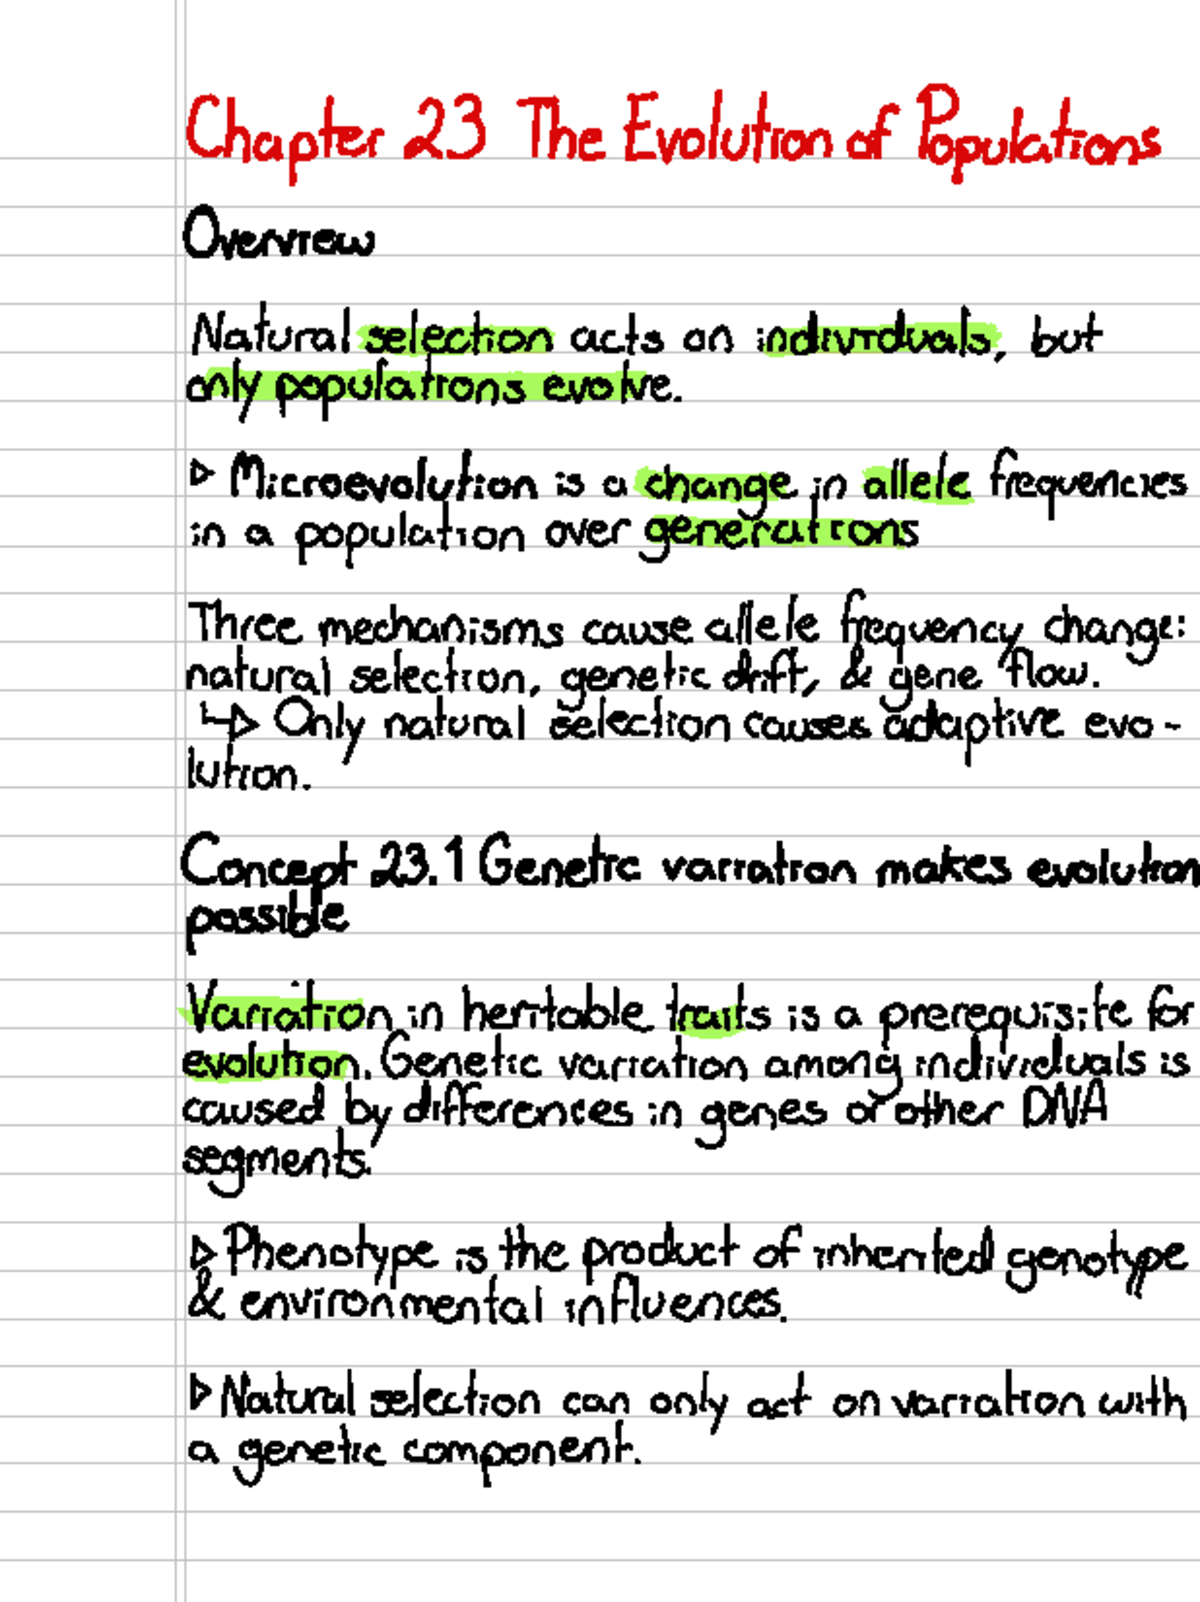 Chapter 23 The Evolution of Populations
Overview
Natural selection acts on individuals, but
only populations evolve.
▷ Microevolution is a change in allele frequencies
in a population over generations
Three mechanisms cause allele frequency change:
natural selection, genetic drift, & gene flow.
↳ Only natural selection causes adaptive evo-
lution.
Concept 23.1 Genetic variation makes evolution
possible
Variation in heritable traits is a prerequisite for
evolution. Genetic variation among individuals is
caused by differences in genes or other DNA
segments.
▷ Phenotype is the product of inherited genotype
& environmental influences.
▷ Natural selection can only act on variation with
a genetic component.